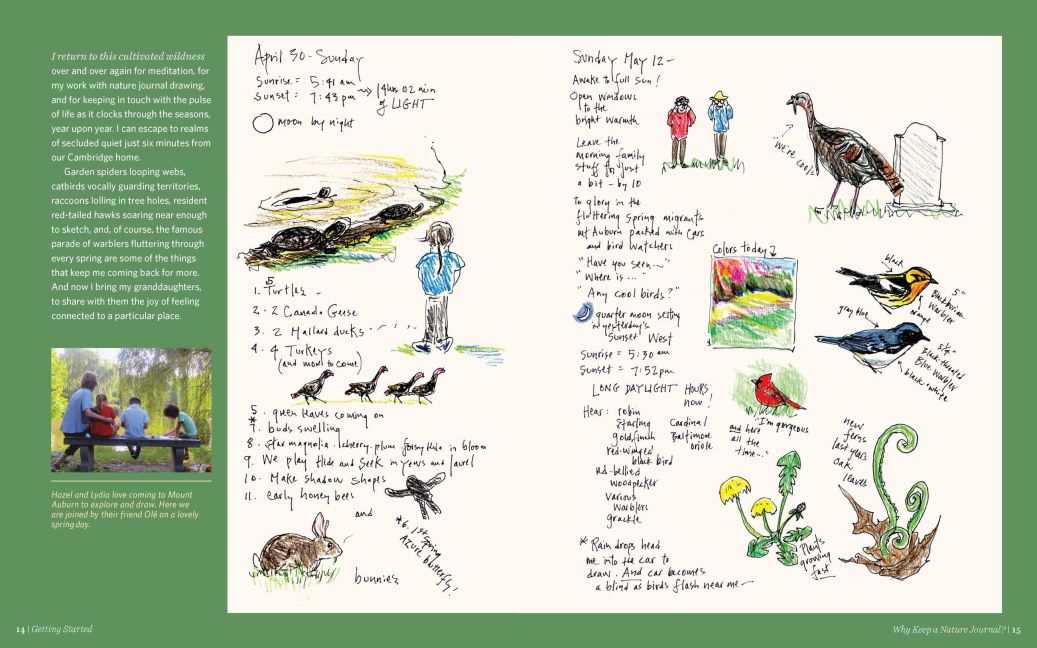 I return to this cultivated wildness
over and over again for meditation, for
my work with nature journal drawing,
and for keeping in touch with the pulse
of life as it clocks through the seasons,
year upon year. I can escape to realms
of secluded quiet just six minutes from
our Cambridge home.
Garden spiders looping webs,
catbirds vocally guarding territories,
raccoons lolling in tree holes, resident
red-tailed hawks soaring near enough
to sketch, and, of course, the famous
parade of warblers fluttering through
every spring are some of the things
that keep me coming back for more.
And now I bring my granddaughters,
to share with them the joy of feeling
connected to a particular place.
Hazel and Lydia love coming to Mount
Auburn to explore and draw. Here we
are joined by their friend Olé on a lovely
spring day.
14 | Getting Started
April 30 - Sunday
Sunrise = 5:41 am
Sunset = 7:43 pm
14 hrs 02 min
of LIGHT
Moon by night
1. 5 Turtles -
2. 2 Canada Geese
3. 2 Mallard ducks
4. 4 Turkeys
(and more to come)
5. green leaves coming on
* 7. buds swelling
8. Star magnolia. cherry. plum forsythia in bloom
9. We play Hide and Seek in yews and laurel
10. Make shadow shapes
11. early honey bees
and
* 6. 1st Spring
AZURE butterfly!
bunnies
Sunday May 12 -
Awake to full sun!
Open windows
to the
bright warmth
Leave the
morning family
stuff for just
a bit - by 10
to glory in the
fluttering spring migrants
Mt Auburn packed with cars
and bird watchers
"Have you seen..."
"Where is..."
"Any cool birds?"
quarter moon setting
in yesterday's
Sunset West
Sunrise = 5:30 am
Sunset = 7:52 pm
LONG DAYLIGHT HOURS
now!
Hear: robin
Starling
goldfinch
red-winged
black bird
red-bellied
woodpecker
various
warblers
grackle
Cardinal
Baltimore
oriole
* Rain drops head
me into the car to
draw. And car becomes
a blind as birds flash near me -
"We're cool"
Colors today
black
5"
Blackburnian
Warbler
orange
gray blue
5 1/4"
Black-throated
Blue Warbler
black + white
"I'm gorgeous
and here
all the
time..."
new
ferns
last year's
oak
leaves
Plants
growing
fast
Why Keep a Nature Journal? | 15